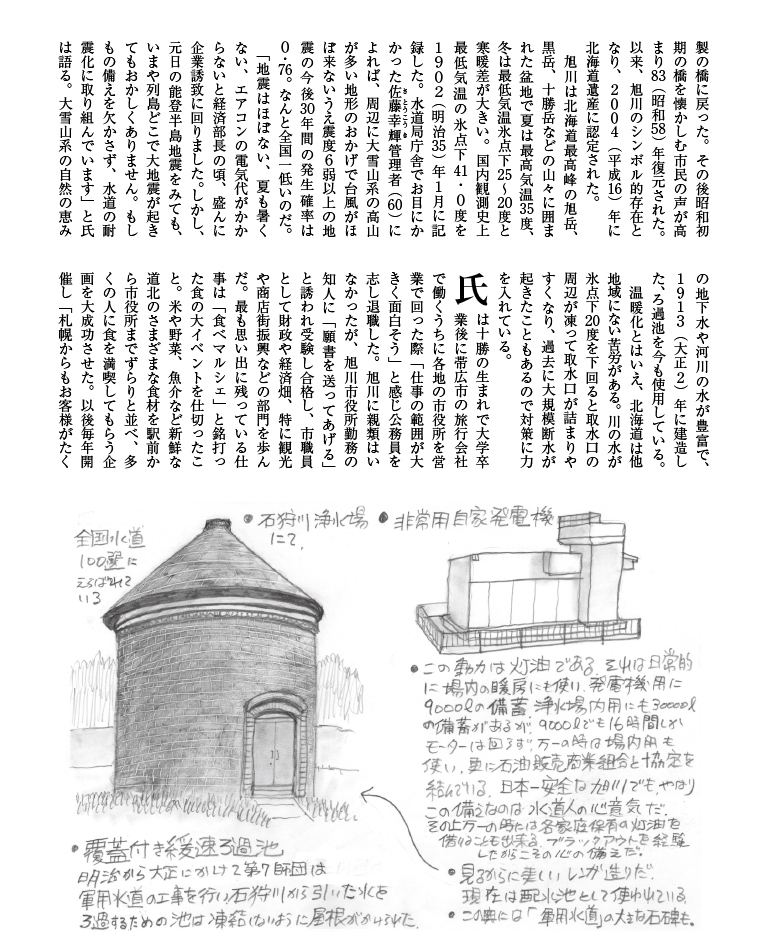 製の橋に戻った。その後昭和初
期の橋を懐かしむ市民の声が高
まり83（昭和58）年復元された。
以来、旭川のシンボル的存在と
なり、2004（平成16）年に
北海道遺産に認定された。
旭川は北海道最高峰の旭岳、
黒岳、十勝岳などの山々に囲ま
れた盆地で夏は最高気温35度、
冬は最低気温氷点下25～20度と
寒暖差が大きい。国内観測史上
最低気温の氷点下41・0度を
1902（明治35）年1月に記
録した。水道局庁舎でお目にか
かった佐藤幸輝管理者（60）に
よれば、周辺に大雪山系の高山
が多い地形のおかげで台風がほ
ぼ来ないうえ震度6弱以上の地
震の今後30年間の発生確率は
0・76。なんと全国一低いのだ。
「地震はほぼない、夏も暑く
ない、エアコンの電気代がかか
らないと経済部長の頃、盛んに
企業誘致に回りました。しかし、
元日の能登半島地震をみても、
いまや列島どこで大地震が起き
てもおかしくありません。もし
もの備えを欠かさず、水道の耐
震化に取り組んでいます」と氏
は語る。大雪山系の自然の恵み
の地下水や河川の水が豊富で、
1913（大正2）年に建造し
た、ろ過池を今も使用している。
温暖化とはいえ、北海道は他
地域にない苦労がある。川の水が
氷点下20度を下回ると取水口の
周辺が凍って取水口が詰まりや
すくなり、過去に大規模断水が
起きたこともあるので対策に力
を入れている。
氏は十勝の生まれで大学卒
業後に帯広市の旅行会社
で働くうちに各地の市役所を営
業で回った際「仕事の範囲が大
きく面白そう」と感じ公務員を
志し退職した。旭川に親類はい
なかったが、旭川市役所勤務の
知人に「願書を送ってあげる」
と誘われ受験し合格し、市職員
として財政や経済畑、特に観光
や商店街振興などの部門を歩ん
だ。最も思い出に残っている仕
事は「食べマルシェ」と銘打っ
た食の大イベントを仕切ったこ
と。米や野菜、魚介など新鮮な
道北のさまざまな食材を駅前か
ら市役所までずらりと並べ、多
くの人に食を満喫してもらう企
画を大成功させた。以後毎年開
催し「札幌からもお客様がたく
全国水道
100選に
えらばれて
いる
●石狩川浄水場
にて。
●非常用自家発電機
●この動力は灯油である。それは日常的
に場内の暖房にも使い、発電機用に
9000ℓの備蓄。浄水場内用にも30000ℓ
の備蓄があるが、9000ℓでも16時間しか
モーターは回らず、万一の時は場内用も
使い、更に石油販売商業組合と協定を
結んでいる。日本一安全な旭川でも、やはり
この備えなのは水道人の心意気だ。
その上万一の時には各家庭保有の灯油を
借りることも出来る。ブラックアウトを経験
したからこその心の備えだ。
●覆蓋付き緩速ろ過池
明治から大正にかけて第7師団は
軍用水道の工事を行い石狩川から引いた水を
ろ過するための池は凍結しないように屋根がかけられた。
●見るからに美しいレンガ造りだ。
現在は配水池として使われている。
●この奥には「軍用水道」の大きな石碑も。